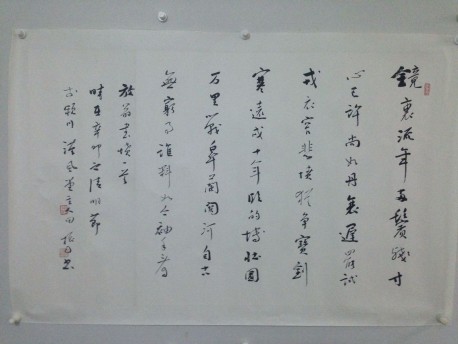 鏡裏流年両鬢殘寸
心自許尚如丹衰遲罷試
戎衣窄悲憤猶爭寶劍
寒遠戍十年臨的博壯圖
万里戰皋蘭關河自古
無窮事誰料如今袖手看
放翁書憤一首
時在辛卯清明節
古潁川風堂主人